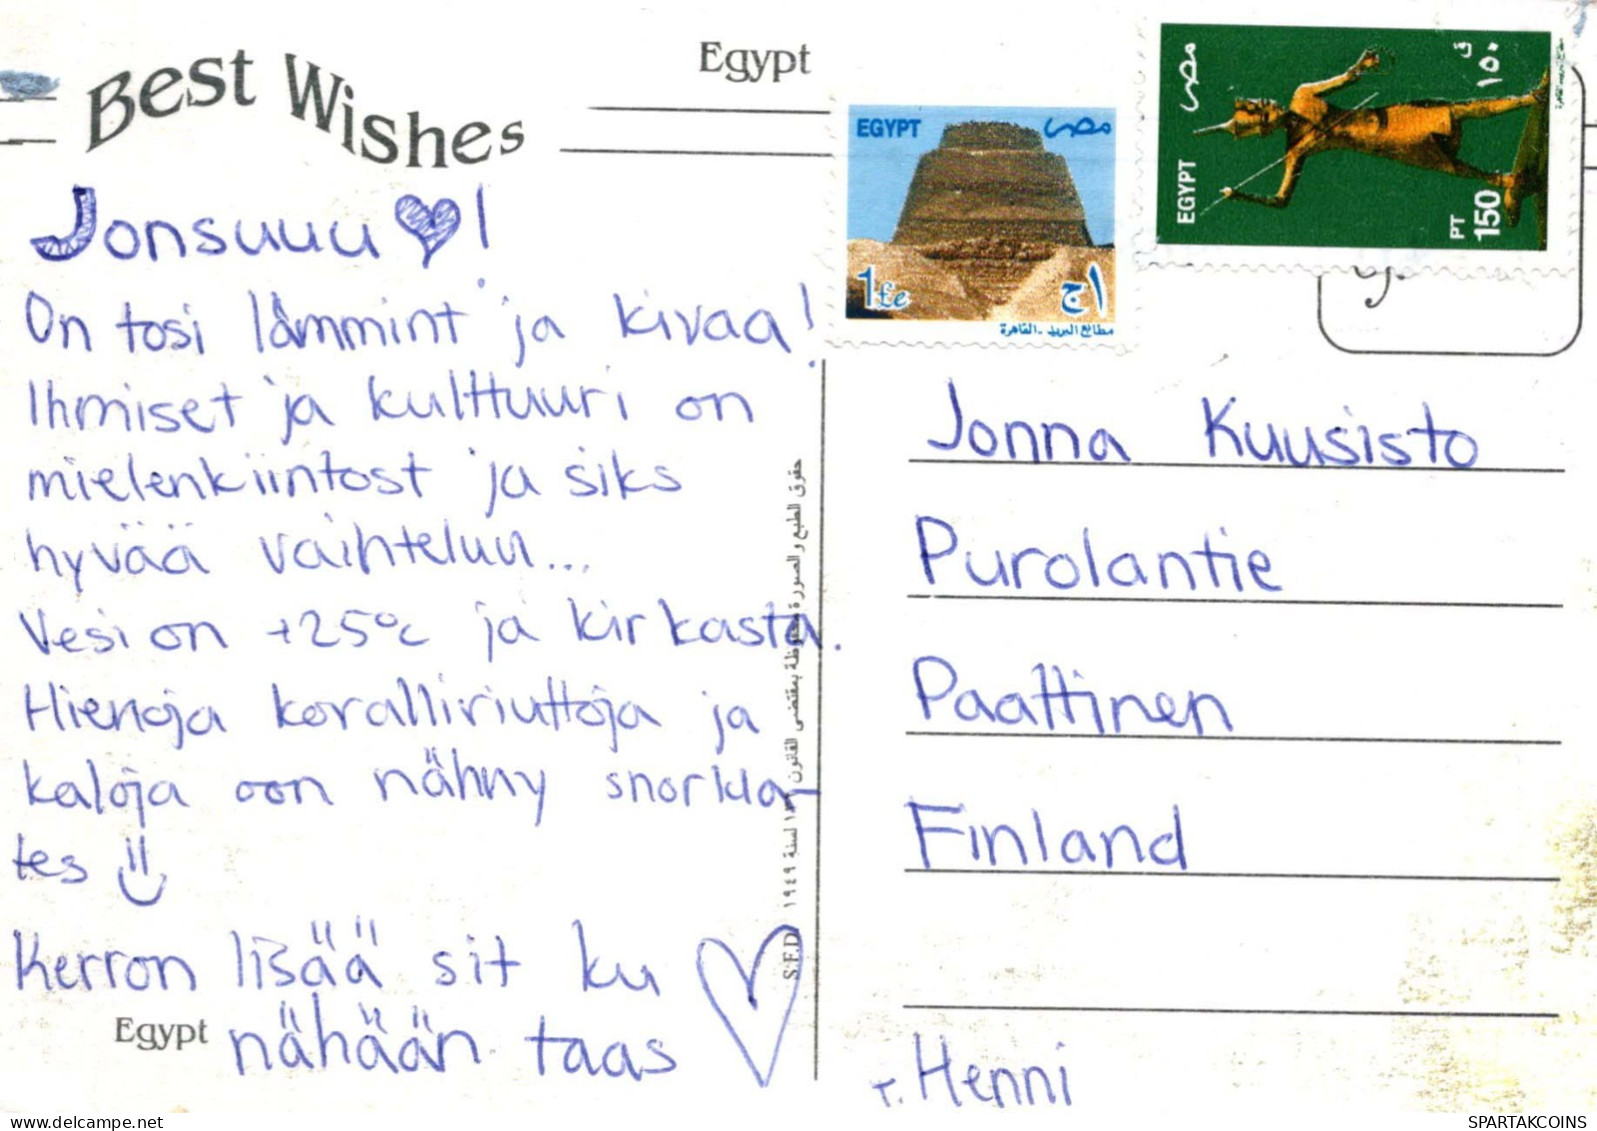 Best Wishes
Egypt
EGYPT مصر
1£e ج١
مطابع البريد - القاهرة
مصر ١٥٠ ق
EGYPT PT 150
Jonsuuu ♥!
On tosi lämmint ja kivaa!
Ihmiset ja kulttuuri on
mielenkiintost ja siks
hyvää vaihteluu...
Vesi on +25°c ja kirkasta.
Hienoja koralliriuttoja ja
kaloja oon nähny snorkla-
tes
Kerron lisää sit ku
nähään taas
Egypt
S.F.D. حقوق الطبع والصورة محفوظة بمقتضى القانون لسنة ١٩٤٩
Jonna Kuusisto
Purolantie
Paattinen
Finland
T. Henni
SPARTAKCOINS